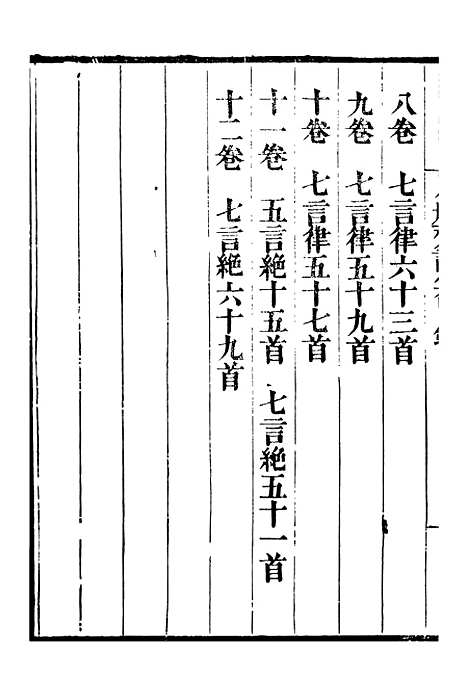 八卷　七言律六十三首
九卷　七言律五十九首
十卷　七言律五十七首
十一卷　五言絶十五首　七言絶五十一首
十二卷　七言絶六十九首